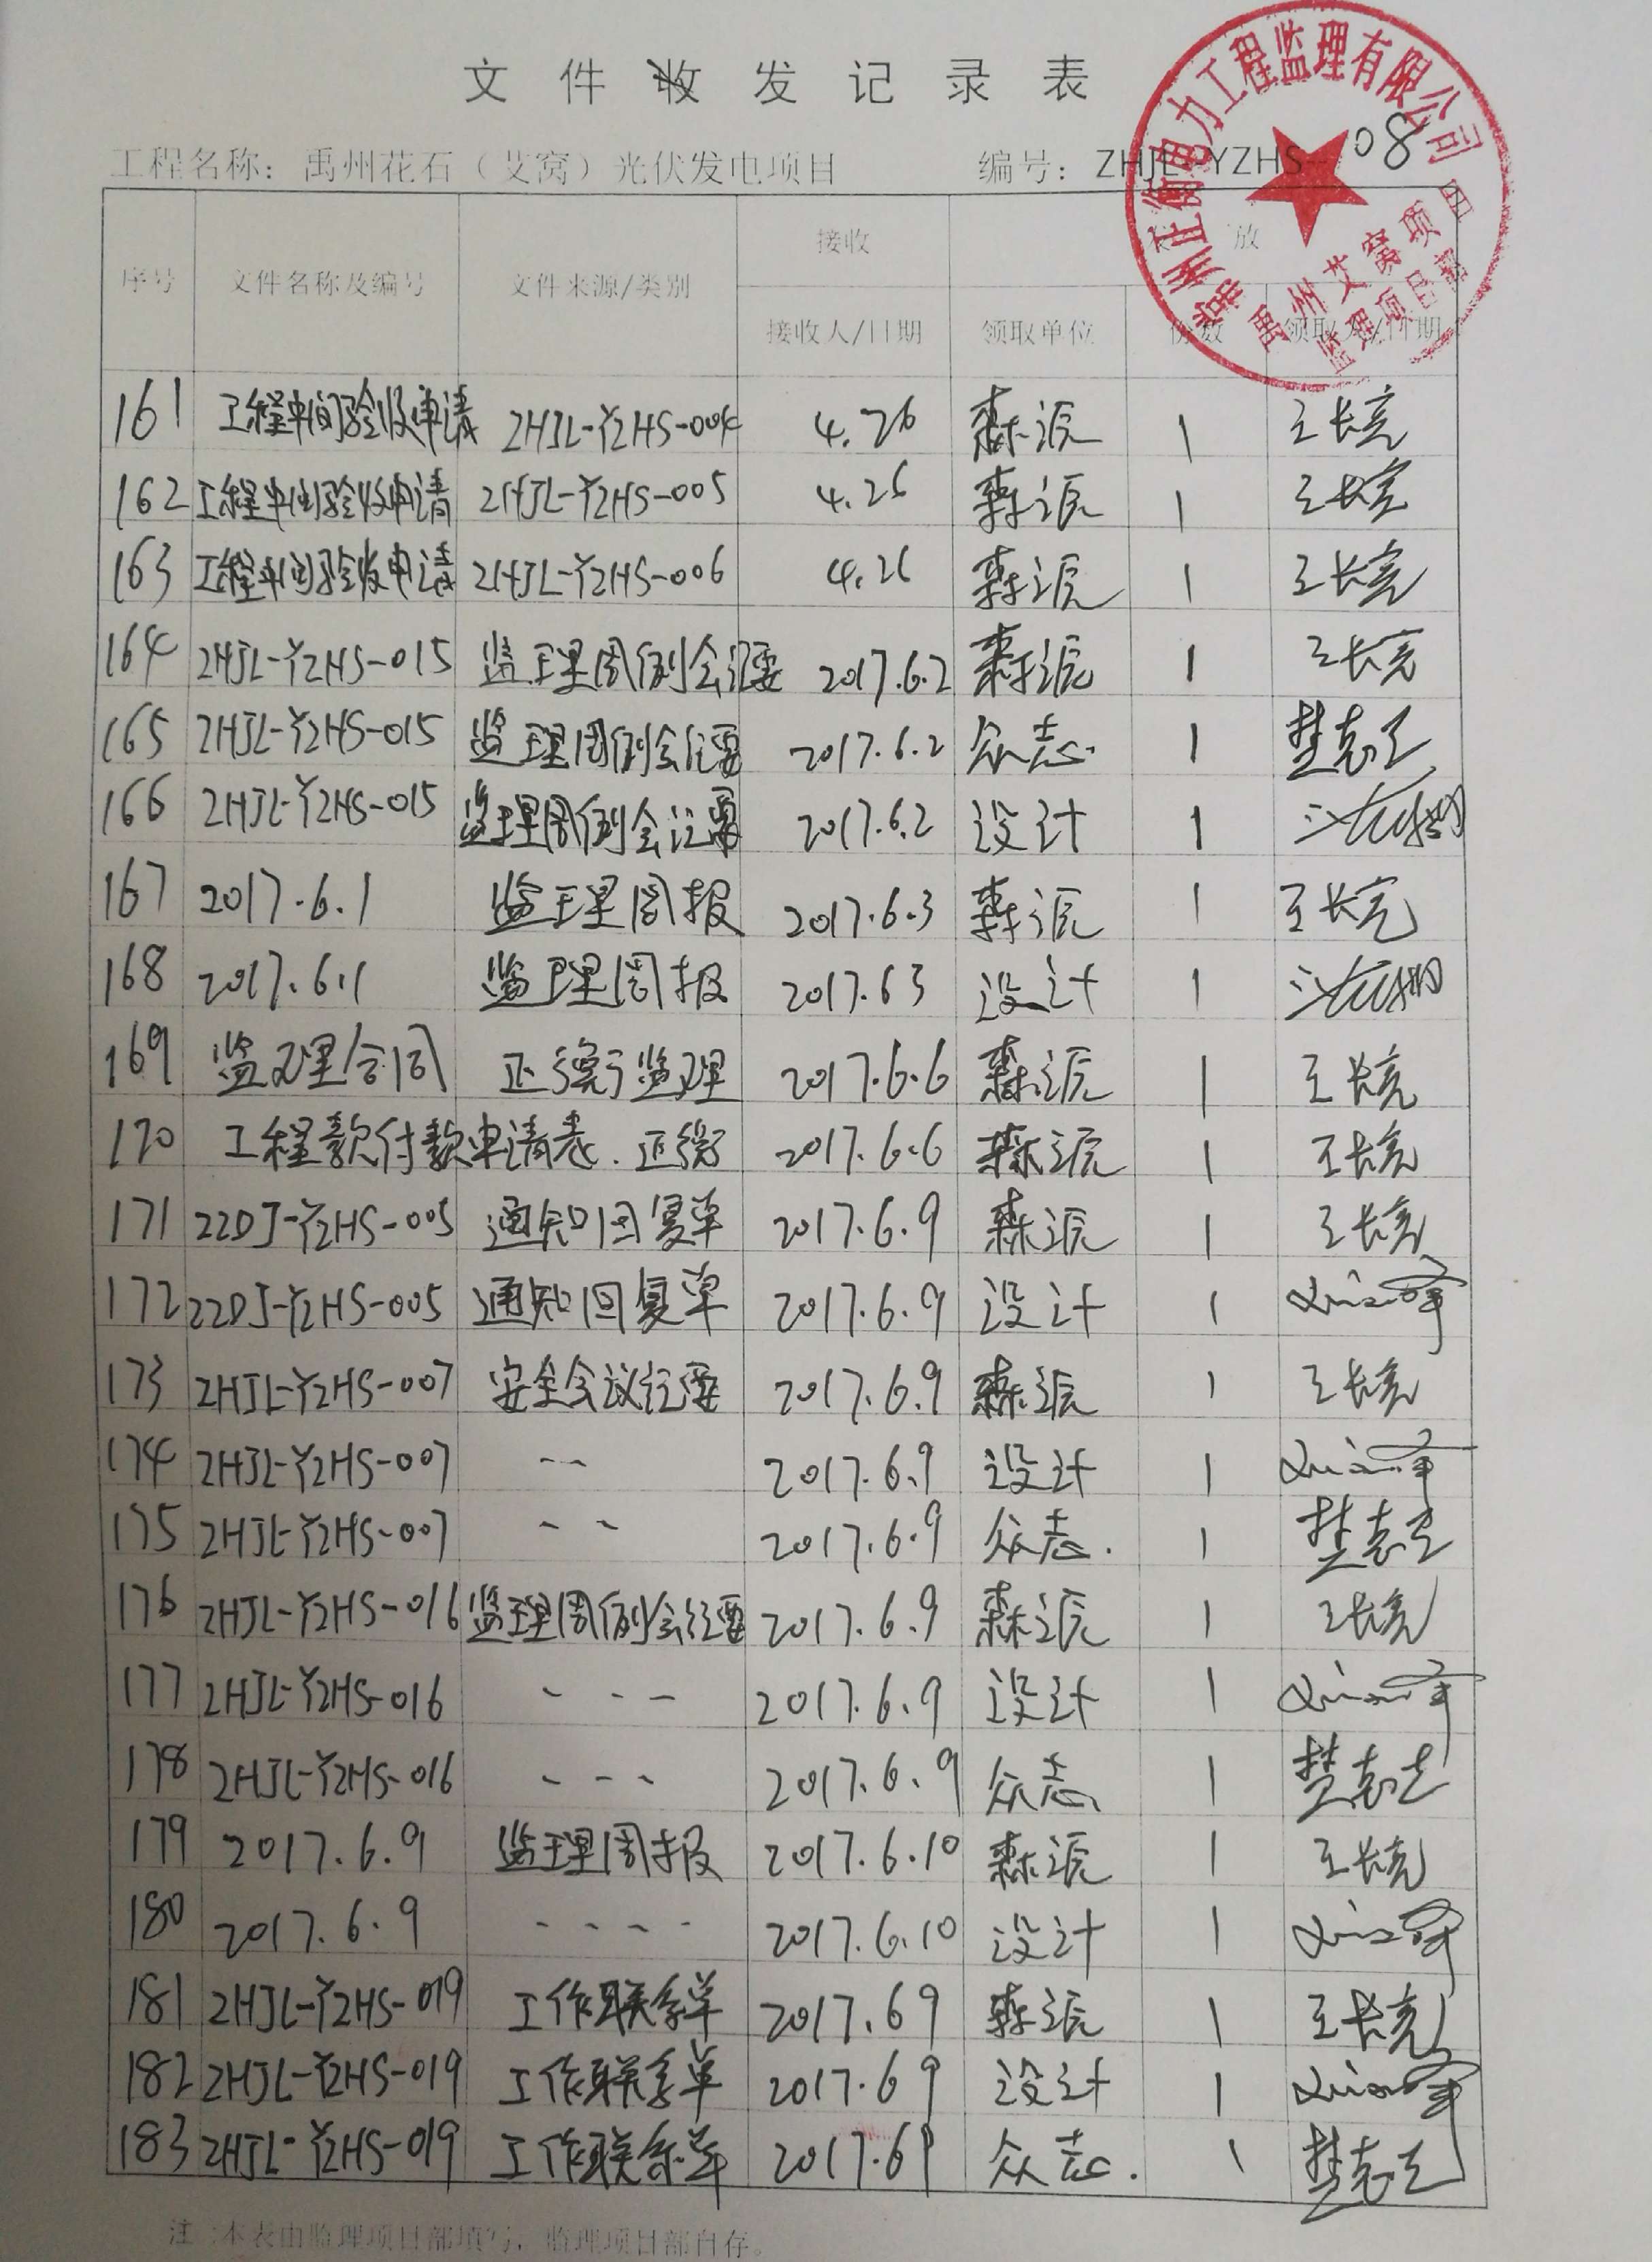 文件收发记录表
工程名称：禹州花石（艾窝）光伏发电项目 编号：ZHJL-YZHS-08
电力工程监理有限公司
禹州艾窝项目
监理项目部
序号 文件名称及编号 文件来源/类别 接收 发放
接收人/日期 领取单位 份数 领取人/日期
161 工程中间验收申请 ZHJL-YZHS-004 4.26 森源 1 王长亮
162 工程中间验收申请 ZHJL-YZHS-005 4.26 森源 1 王长亮
163 工程中间验收申请 ZHJL-YZHS-006 4.26 森源 1 王长亮
164 ZHJL-YZHS-015 监理周例会记要 2017.6.2 森源 1 王长亮
165 ZHJL-YZHS-015 监理周例会记要 2017.6.2 众志 1
166 ZHJL-YZHS-015 监理周例会记要 2017.6.2 设计 1
167 2017.6.1 监理周报 2017.6.3 森源 1 王长亮
168 2017.6.1 监理周报 2017.6 3 设计 1
169 监理合同 正衡监理 2017.6.6 森源 1 王长亮
170 工程款付款申请表.正衡 2017.6.6 森源 1 王长亮
171 ZZDJ-YZHS-005 通知回复单 2017.6.9 森源 1 王长亮
172 ZZDJ-YZHS-005 通知回复单 2017.6.9 设计 1
173 ZHJL-YZHS-007 安全会议纪要 2017.6.9 森源 1 王长亮
174 ZHJL-YZHS-007 -- 2017.6.9 设计 1
175 ZHJL-YZHS-007 -- 2017.6.9 众志. 1
176 ZHJL-YZHS-016 监理周例会纪要 2017.6.9 森源 1 王长亮
177 ZHJL-YZHS-016 --- 2017.6.9 设计 1
178 ZHJL-YZHS-016 --- 2017.6.9 众志 1
179 2017.6.9 监理周报 2017.6.10 森源 1 王长亮
180 2017.6.9 ---- 2017.6.10 设计 1
181 ZHJL-YZHS-019 工作联系单 2017.6 9 森源 1 王长亮
182 ZHJL-YZHS-019 工作联系单 2017.6 9 设计 1
183 ZHJL-YZHS-019 工作联系单 2017.6 9 众志. 1
注：本表由监理项目部填写，监理项目部自存。